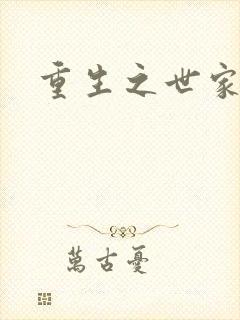 重生之世家
萬古憂